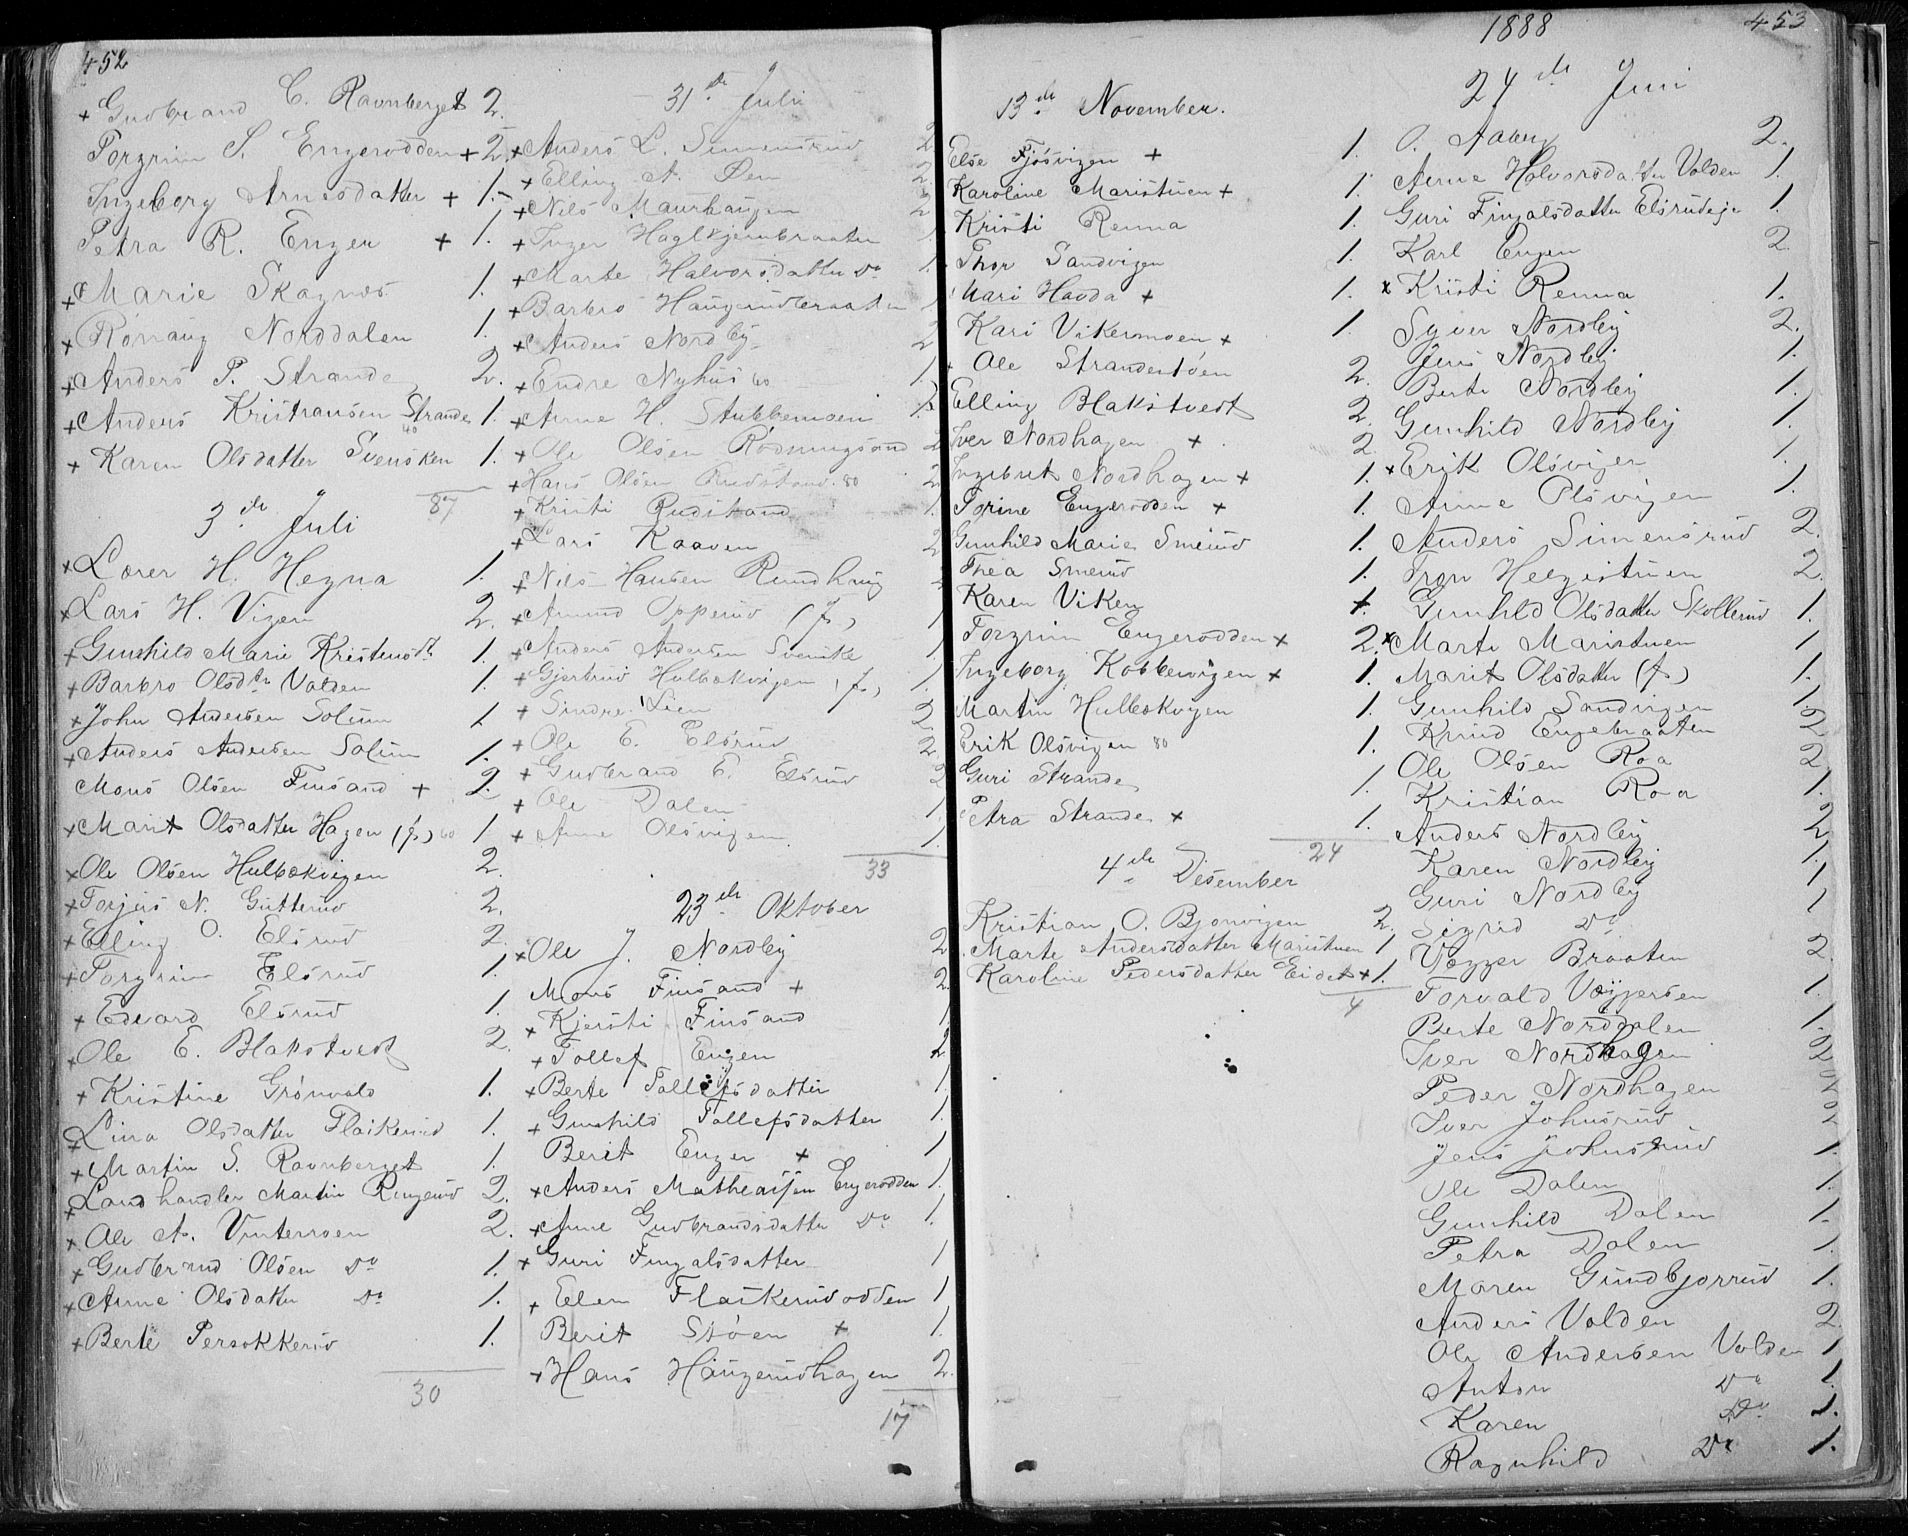 452
+ Gudbrand C. Ravnberget 2.
Torgrim S. Engerodden + 2.
Ingeborg Arnesdatter + 1.
Petra R. Engen + 1.
+ Marie Skagnæs 1.
+ Rønnaug Norddalen 1.
+ Anders P. Strande 2.
+ Anders Kristiansen Strande 1.
+ Karen Olsdatter Svensken 40 1.
87
3die Juli
+ Lorer H. Hegna 1.
+ Lars H. Vigen 2.
+ Gunhild Marie Kristensdt. 1.
+ Barbro Olsdtr Valden 1.
+ John Andersen Solum 1.
+ Anders Andersen Solum 1.
Mons Olsen Finsand + 2.
+ Marit Olsdatter Hagen (f.) 60 1.
+ Ole Olsen Hulbækvigen 2.
+ Torjus N. Gutterud 2.
+ Elling O. Elsrud 2.
+ Torgrim Elsrud 1.
+ Edvard Elsrud 1.
+ Ole E. Blakstvedt 2.
+ Kristine Grønvold 1.
+ Lina Olsdatter Flaskerud 1.
+ Martin S. Ravnberget 1.
+ Landhandler Martin Ringerud 2.
+ Ole A. Vintermoen 2.
+ Gudbrand Olsen Do 1.
+ Anne Olsdatter Do 1.
+ Berte Persokkerud 1.
30
31te Juli
+ Anders L. Simensrud 2
+ Elling A. Øen 2
+ Nils Maurhaugen 2
+ Inger Haglkjernbraaten 1
+ Marte Halvorsdatter Do 1.
+ Barbro Haugerudbraaten 1
+ Anders Nordby 2
+ Endre Nyhus 60 1.
+ Anne H. Stubbemoen 1.
+ Ole Olsen Rødningsand 2
+ Hans Olsen Rudstand. 80 2
+ Kristi Rudstand 1.
+ Lars Kaaven 2
+ Nils Hansen Rundhaug
+ Amund Opperud (f.) 1
+ Anders Andersen Svenske 1
+ Gjertrud Hulbækvigen (f.) 1.
+ Sindre Lien 2.
+ Ole E. Elsrud 2.
+ Gudbrand E. Elsrud 2
+ Ole Dalen 1.
+ Anne Olsvigen 1.
33
23de Oktober
+ Ole J. Nordby 2
Mons Finsand + 2.
+ Kjersti Finsand 1
+ Tollef Engen 2
+ Berte Tollefsdatter 1
+ Gunhild Tollefsdatter 1.
Berit Engen + 1
+ Anders Matheasen Engerodden 1.
+ Anne Gudbrandsdatter Do 1.
+ Guri Fingalsdatter 1
+ Elen Flaskerudodden 1
Berit Støen + 1.
+ Hans Haugerudhagen 2.
17
453
13de November.
Else Fjøsvigen + 1.
Karoline Maristuen + 1.
Kristi Renna 1.
Thor Sandvigen 1.
Mari Havda + 1.
Kari Vikermoen + 1.
Ole Strandestøen 2.
Elling Blakstvedt 2.
Iver Nordhagen + 2.
Ingebret Nordhagen + 1.
Torine Engerodden + 1.
Gunhild Marie Smerud 1.
Thea Smerud 1.
Karen Viken 1.
Torgrim Engerodden + 2.
Ingeborg Kobbervigen + 1.
Martin Hulbækvigen 1.
Erik Olsvigen 80 1.
Guri Strande 1.
Petra Strande + 1.
24
4de Desember
Kristian O. Bjonvigen 2.
Marte Andersdatter Maristuen 1
Karoline Pedersdatter Eidet + 1.
4
1888
24de Juni
O. Aaberg 2.
Anne Halvorsdatter Valden 1.
Guri Fingalsdatter Elsrudeje 1.
Karl Engen 2.
x Kristi Renna 1.
Syver Nordby 2.
Jens Nordby 1.
Berte Nordby 1.
Gunhild Nordby 1.
x Erik Olsvigen 1.
Anne Olsvigen 1.
Anders Simensrud 2.
Tron Helgestuen 2.
Gunhild Olsdatter Skollerud 1.
x Marte Maristuen 1.
Marit Olsdatter (f.) 1.
Gunhild Sandvigen 1.
Knud Engebraaten 2
Ole Olsen Roa 2
Kristian Roa 1.
Anders Nordby 2
Karen Nordby 1.
Guri Nordby 1
Sigrid Do 1
Vegger Braaten 2.
Torvald Veggersen 1.
Berte Norddalen 1.
Iver Nordhagen 2
Peder Nordhagen 2
Iver Johnsrud 2
Jens Johnsrud 1.
Ole Dalen 1.
Gunhild Dalen 1.
Petra Dalen 1.
Maren Gundbjørrud 1.
Anders Valden 2.
Ole Andersen Valden 1
Anton Do 1.
Karen Do 1.
Ragnhild Do 1.